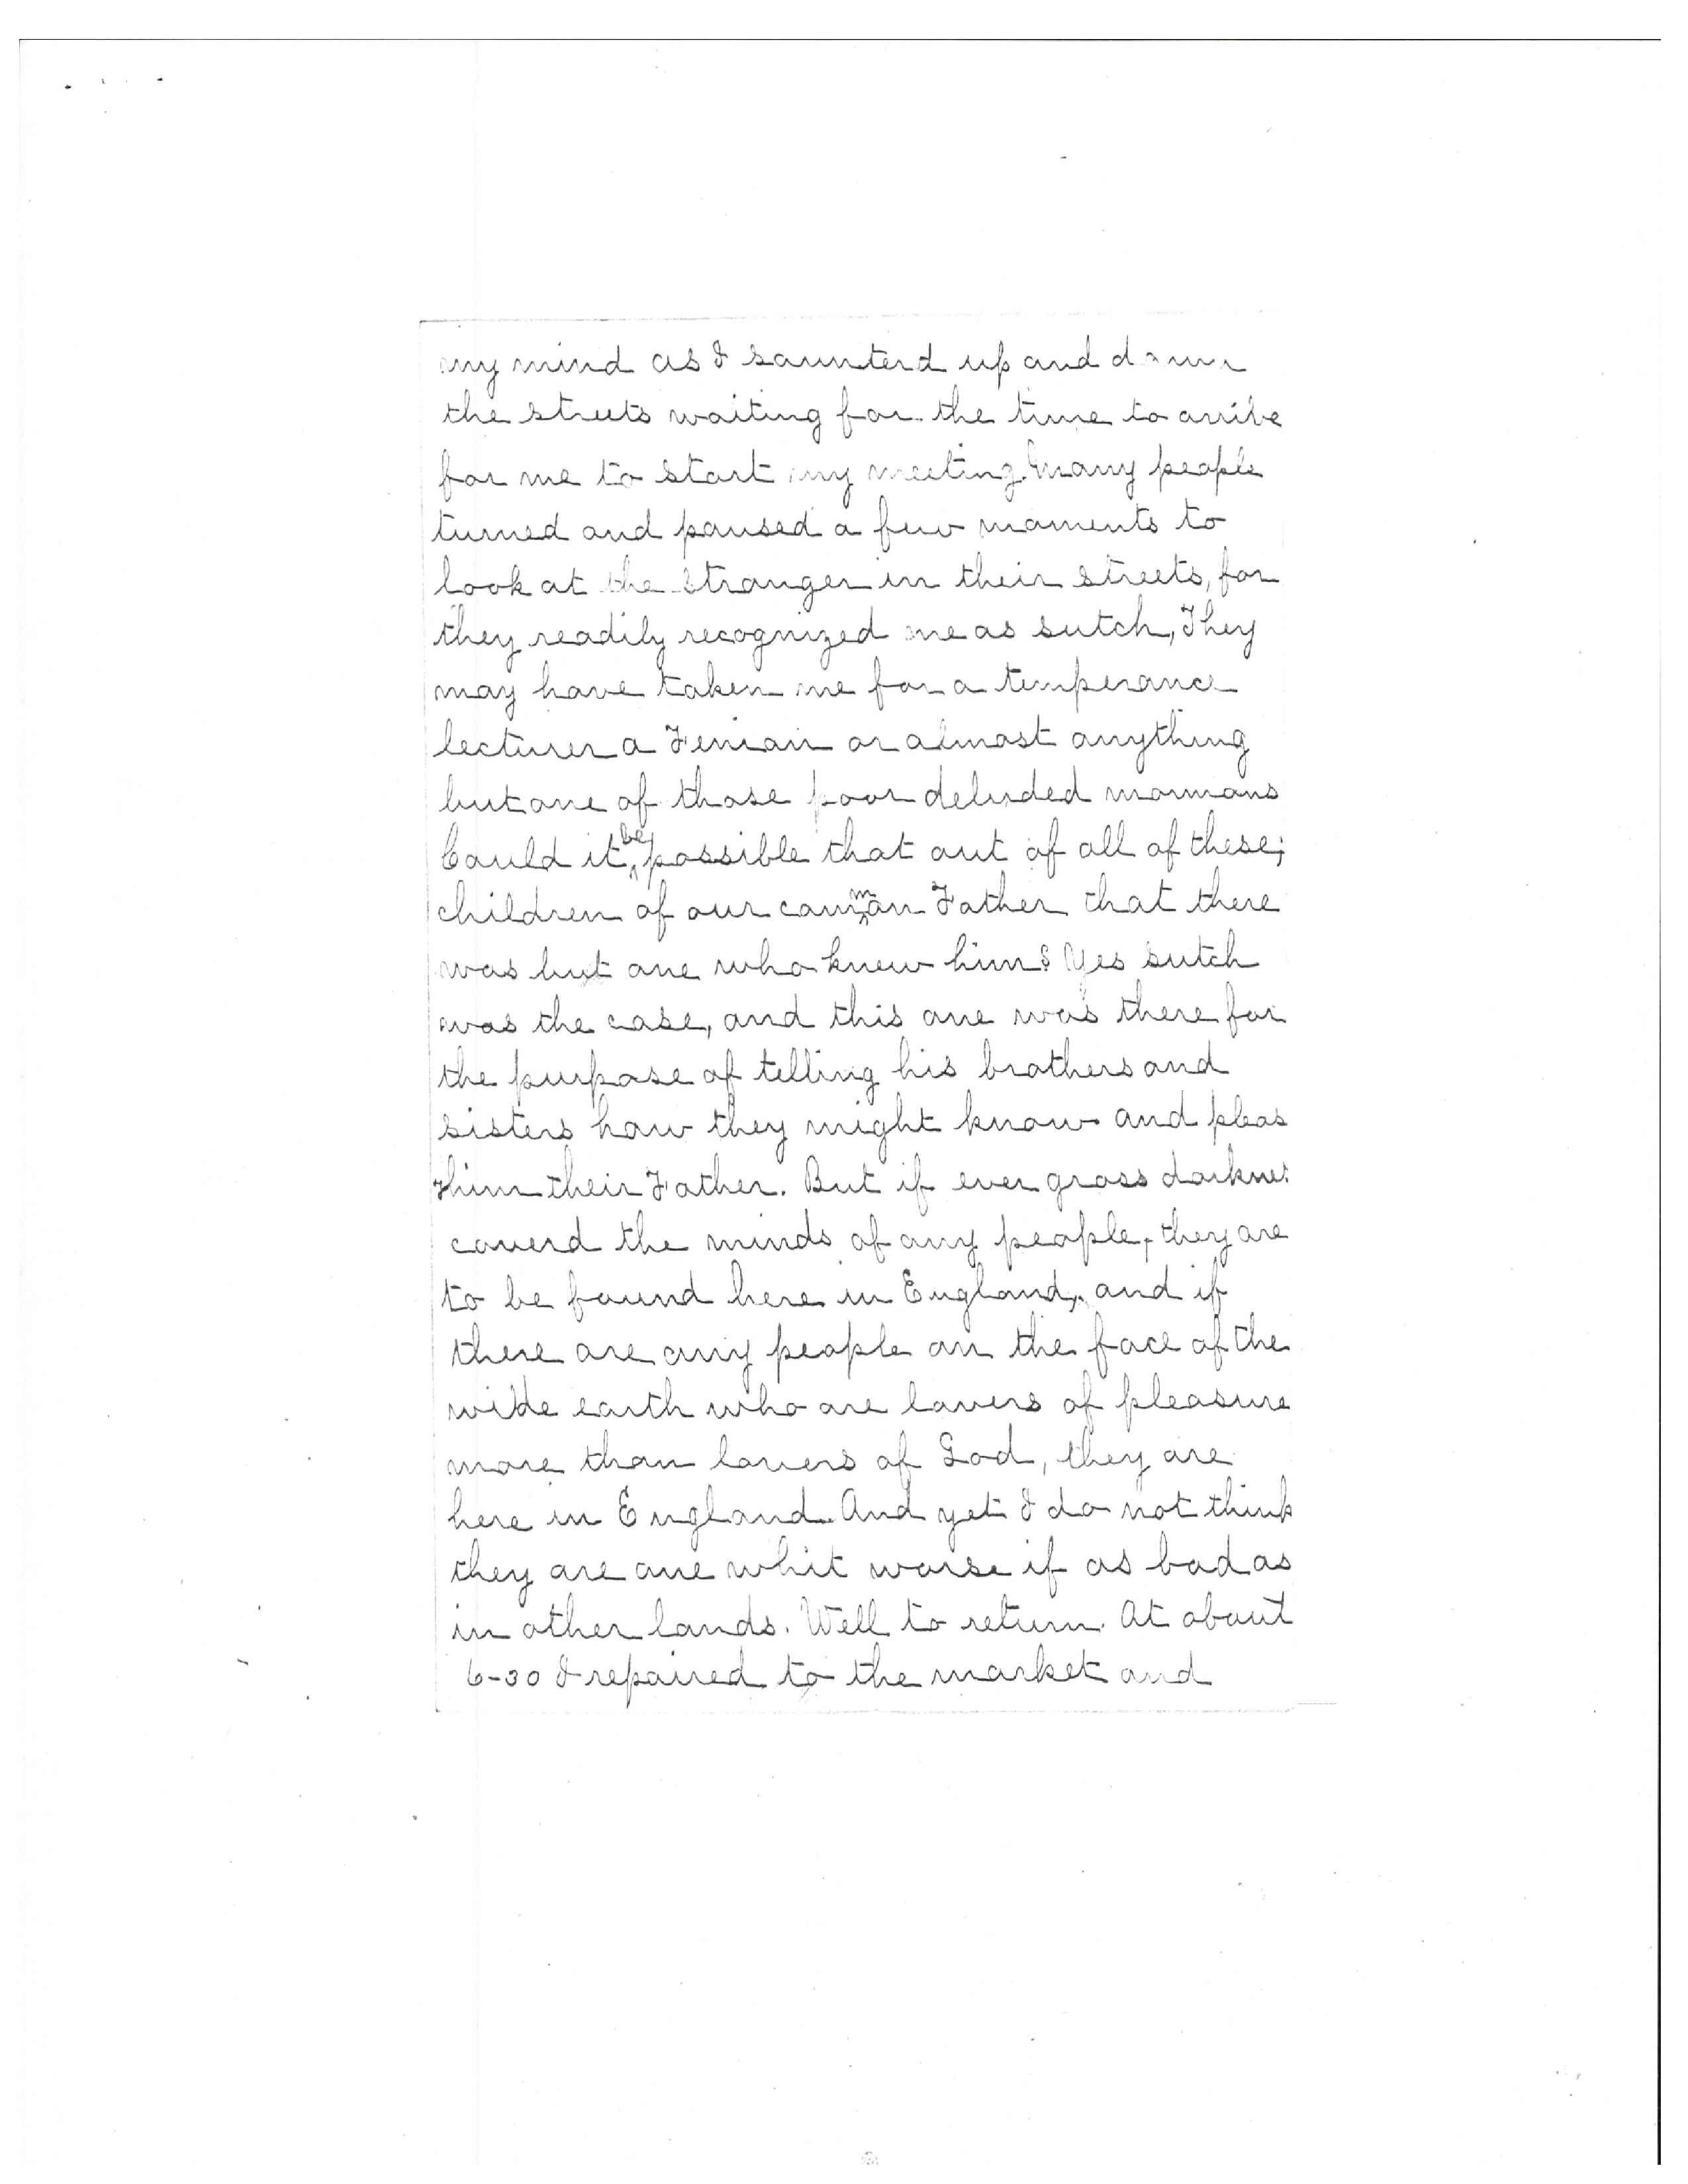 my mind as I saunterd up and down
the streets waiting for the time to arrive
for me to start my meeting. Many people
turned and paused a few moments to
look at the stranger in their streets, for
they readily recognized me as sutch, They
may have taken me for a temperance
lecturer a Fenian or almost anything
but one of those poor deluded mormons
Could it be possible that out of all of these;
children of our common Father that there
was but one who knew him? Yes sutch
was the case, and this one was there for
the purpose of telling his brothers and
sisters how they might know and pleas
him their Father. But if ever gross darknes
coverd the minds of any people, they are
to be found here in England, and if
there are any people on the face of the
wide earth who are lovers of pleasure
more than lovers of God, they are
here in England. And yet I do not think
they are one whit worse if as bad as
in other lands. Well to return. At about
6-30 I repaired to the market and